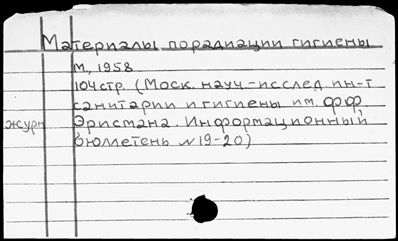 Материалы порадиации гигиены
М, 1958
104стр. (Моск. науч.-исслед ин-т
санитарии и гигиены им. Ф.Ф.
журн Эрисмана. Информационный
бюллетень №19-20)